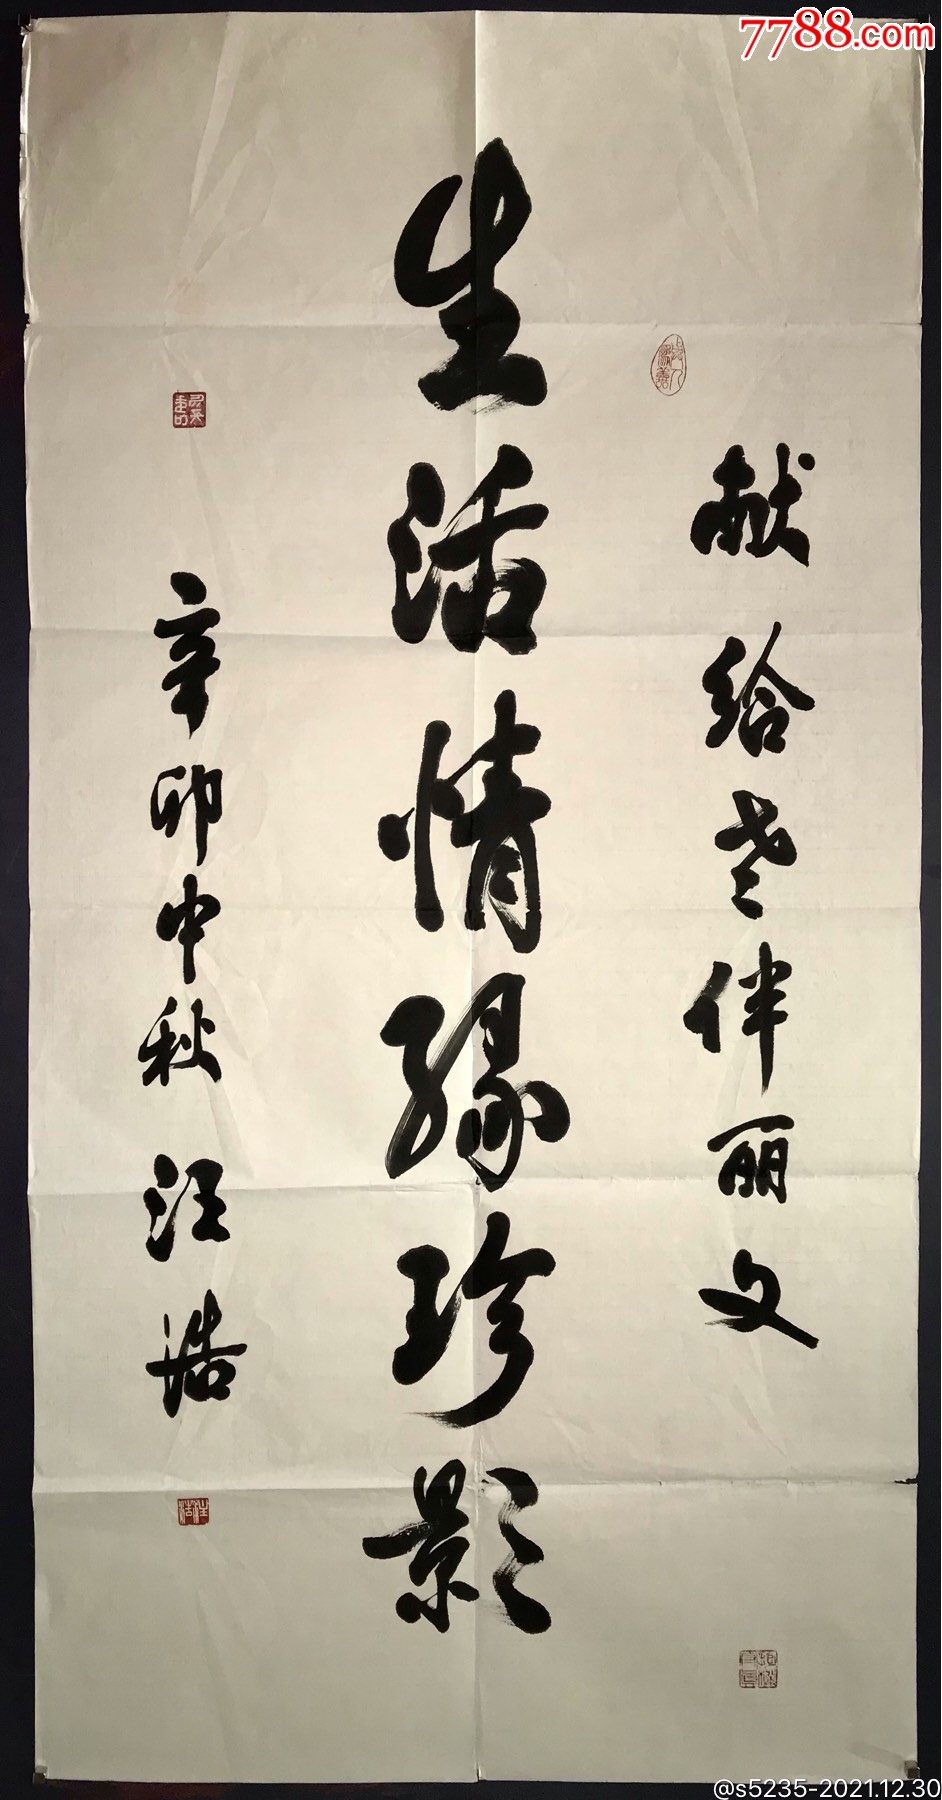 7788.com
献给老伴丽文
生活情缘珍影
辛卯中秋 汪浩
@s5235-2021.12.30